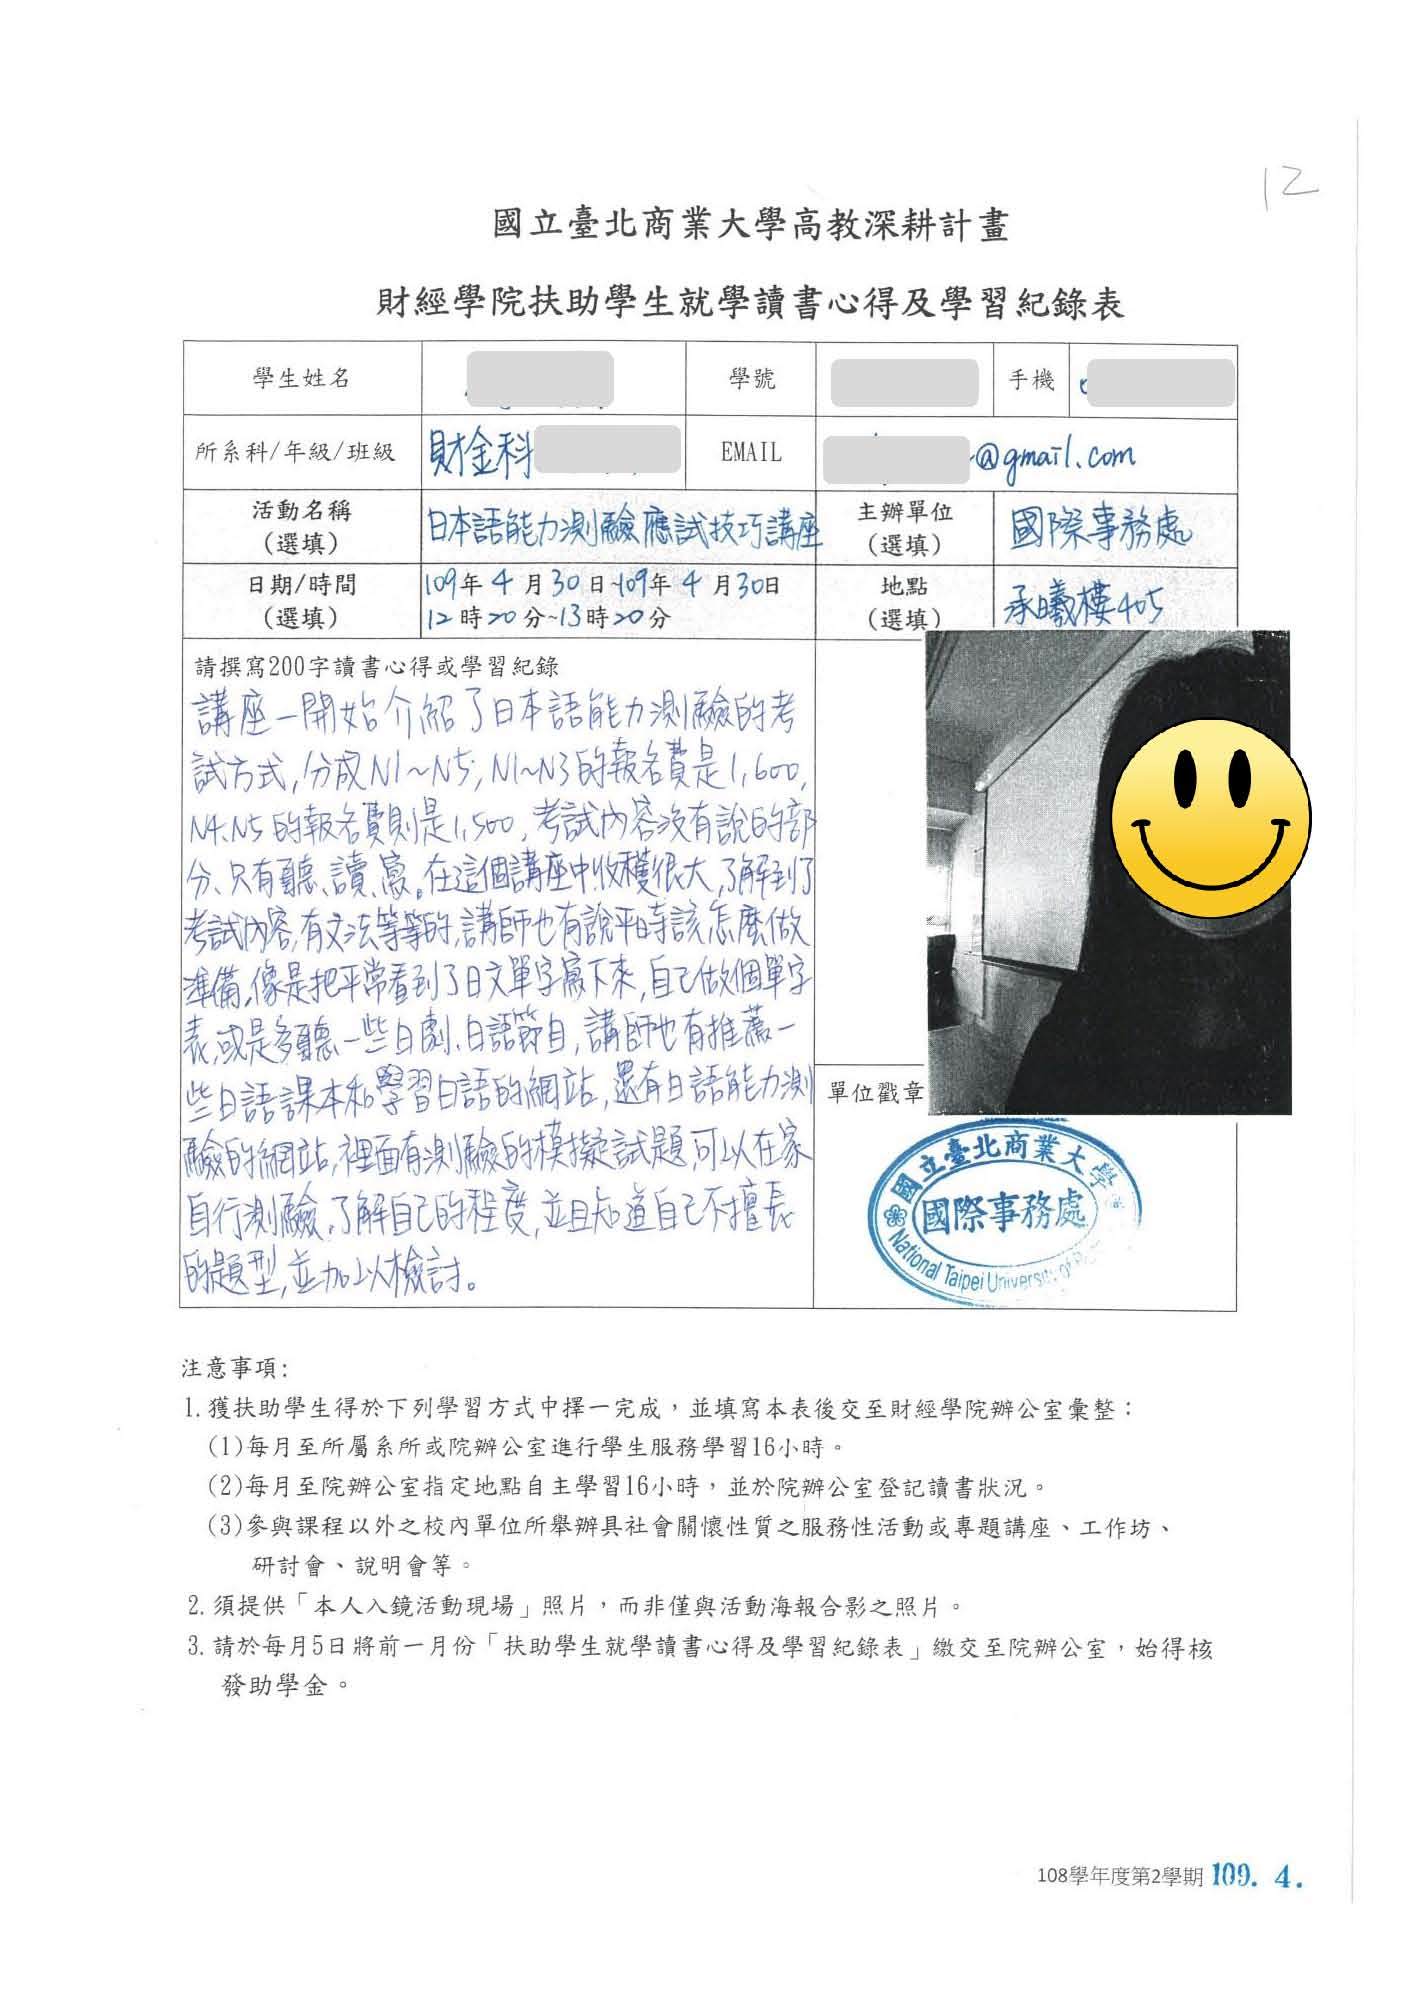 12
國立臺北商業大學高教深耕計畫
財經學院扶助學生就學讀書心得及學習紀錄表
學生姓名
學號
手機
所系科/年級/班級
財金科
EMAIL
@gmail.com
活動名稱
(選填)
日本語能力測驗應試技巧講座
主辦單位
(選填)
國際事務處
日期/時間
(選填)
109年 4 月 30 日~109年 4 月 30日
12時20分~13時20分
地點
(選填)
承曦樓405
請撰寫200字讀書心得或學習紀錄
講座一開始介紹了日本語能力測驗的考
試方式,分成N1~N5,N1~N3的報名費是1,600,
N4.N5的報名費則是1,500,考試內容沒有說的部
分、只有聽、讀、寫。在這個講座中收穫很大,了解到了
考試內容,有文法等等的,講師也有說平時該怎麼做
準備,像是把平常看到了日文單字寫下來,自己做個單字
表,或是多聽一些日劇、日語節目,講師也有推薦一
些日語課本和學習日語的網站,還有日語能力測
驗的網站,裡面有測驗的模擬試題,可以在家
自行測驗,了解自己的程度,並且知道自己不擅長
的題型,並加以檢討。
單位戳章
國立臺北商業大學
國際事務處
National Taipei University of
注意事項:
1.獲扶助學生得於下列學習方式中擇一完成,並填寫本表後交至財經學院辦公室彙整:
(1)每月至所屬系所或院辦公室進行學生服務學習16小時。
(2)每月至院辦公室指定地點自主學習16小時,並於院辦公室登記讀書狀況。
(3)參與課程以外之校內單位所舉辦具社會關懷性質之服務性活動或專題講座、工作坊、
研討會、說明會等。
2.須提供「本人入鏡活動現場」照片,而非僅與活動海報合影之照片。
3.請於每月5日將前一月份「扶助學生就學讀書心得及學習紀錄表」繳交至院辦公室,始得核
發助學金。
108學年度第2學期 109. 4.